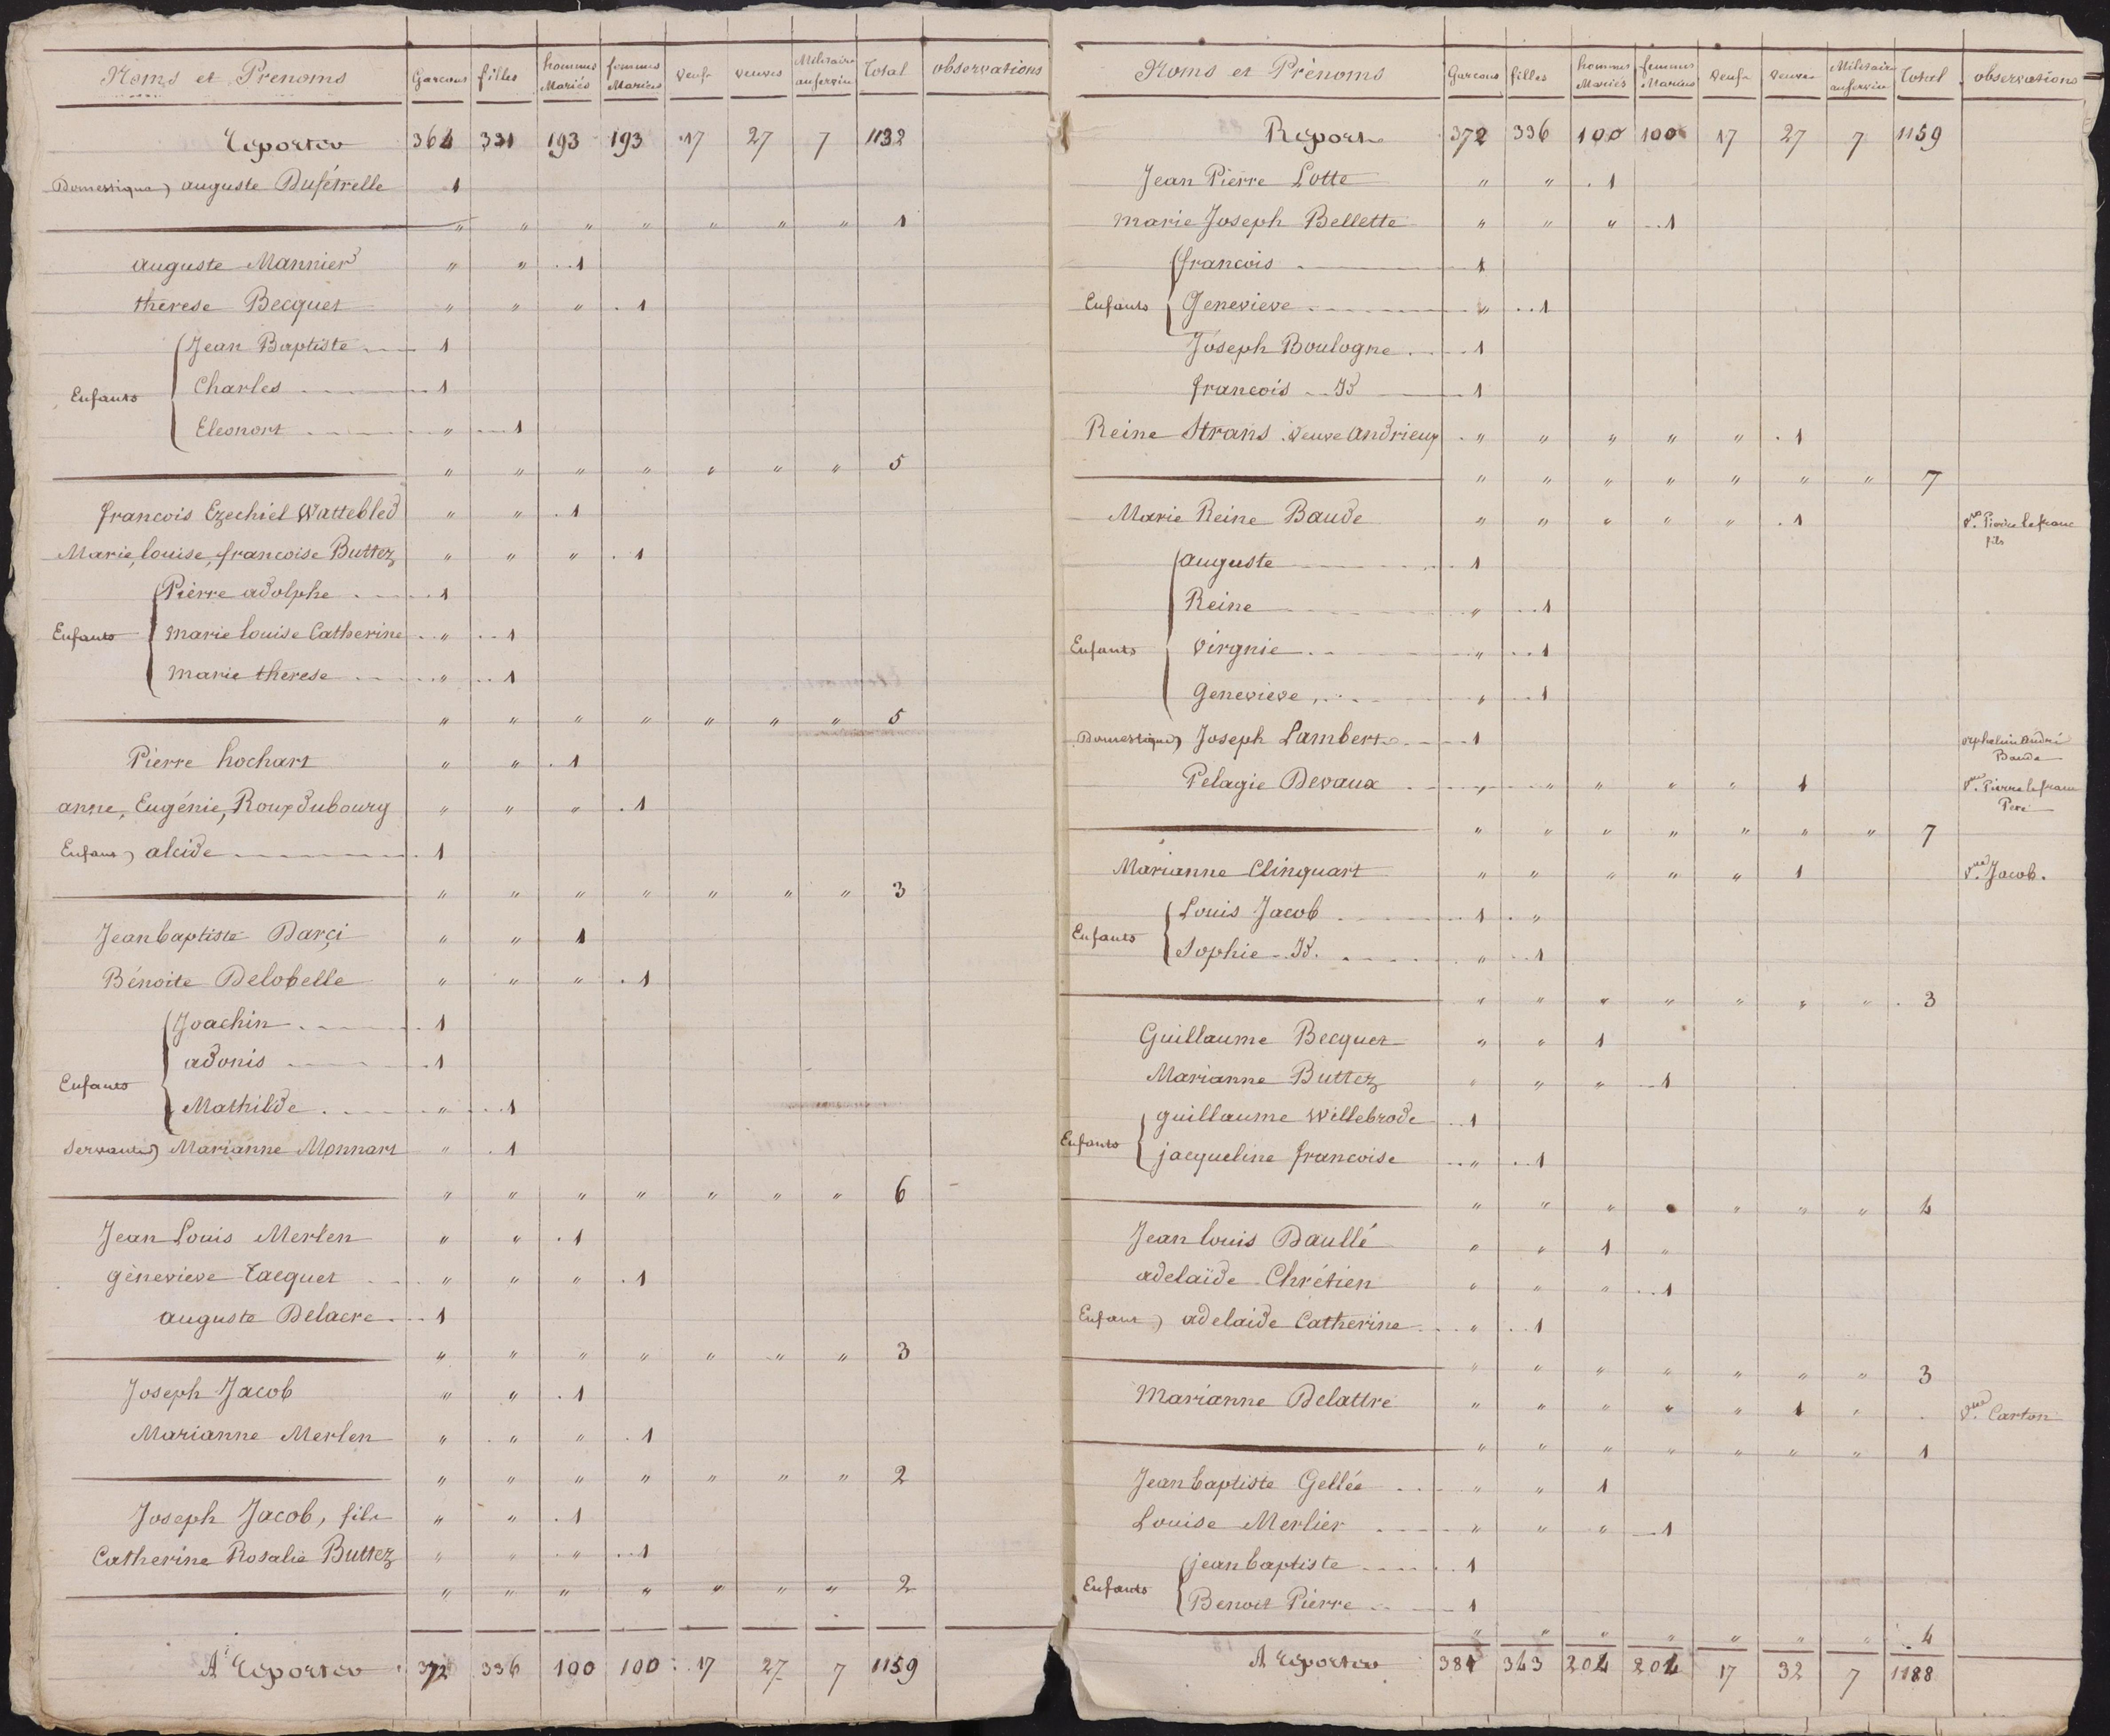 Noms et Prénoms Garcons filles hommes Mariés femmes Mariées veufs veuves Militaire au service Total observations
Reporter 364 331 193 193 17 27 7 1132
Domestique) auguste Dufétrelle 1
" " " " " " " 1
auguste Mannier " " 1
thérese Becquet " " " 1
Jean Baptiste 1
Enfants Charles 1
Eleonort " 1
" " " " " " " 5
francois Ezechiel Wattebled " " 1
Marie, louise, francoise Buttez " " " 1
Pierre adolphe 1
Enfants marie louise Catherine " 1
marie therese " 1
" " " " " " " 5
Pierre hochart " " 1
anne, Eugénie, Roux dubourg " " " 1
Enfant) alcide 1
" " " " " " " 3
Jean baptiste Darçi " " 1
Bénoite Delobelle " " " 1
Joachin 1
adonis 1
Enfants
Mathilde " 1
Servante) Marianne Monnart " 1
" " " " " " " 6
Jean Louis Merlen " " 1
géneviève Tacquet " " " 1
auguste Delacre 1
" " " " " " " 3
Joseph Jacob " " 1
Marianne Merlen " " " 1
" " " " " " " 2
Joseph Jacob, fils " " 1
Catherine Rosalie Buttez " " " 1
" " " " " " " 2
A Reporter 372 336 100 100 17 27 7 1159
Noms et Prénoms Garcons filles hommes Mariés femmes Mariées veufs veuves Militaire au service Total observations
Report 372 336 100 100 17 27 7 1159
Jean Pierre Lotte " " 1
marie Joseph Bellette " " " 1
francois 1
Enfants Genevieve " 1
Joseph Boulogne 1
francois Id 1
Reine Strans veuve Andrieux " " " " " 1
" " " " " " " 7
Marie Reine Baude " " " " " 1 Ve. Pierre lefranc fils
auguste 1
Reine " 1
Enfants virgnie " 1
Genevieve " 1
Domestique) Joseph Lambert 1 orphelin André Baude
Pelagie Devaux " " " " " 1 Vve. Pierre lefranc Pere
" " " " " " " 7
Marianne Clinquart " " " " " 1 Vve. Jacob.
Louis Jacob 1 "
Enfants
Sophie Id. " 1
" " " " " " " 3
Guillaume Becquet " " 1
Marianne Buttez " " " 1
guillaume Willebrode 1
Enfants
jacqueline francoise " 1
" " " " " " " 4
Jean louis Daullé " " 1 "
adelaïde Chrétien " " " 1
Enfant) adelaide Catherine " 1
" " " " " " " 3
Marianne Delattre " " " " " 1 " Vve. Carton
" " " " " " " 1
Jean baptiste Gellée " " 1
Louise Merlier " " " 1
jean baptiste 1
Enfants
Benoit Pierre 1
" " " " " " " 4
A Reporter 381 343 204 204 17 32 7 1188